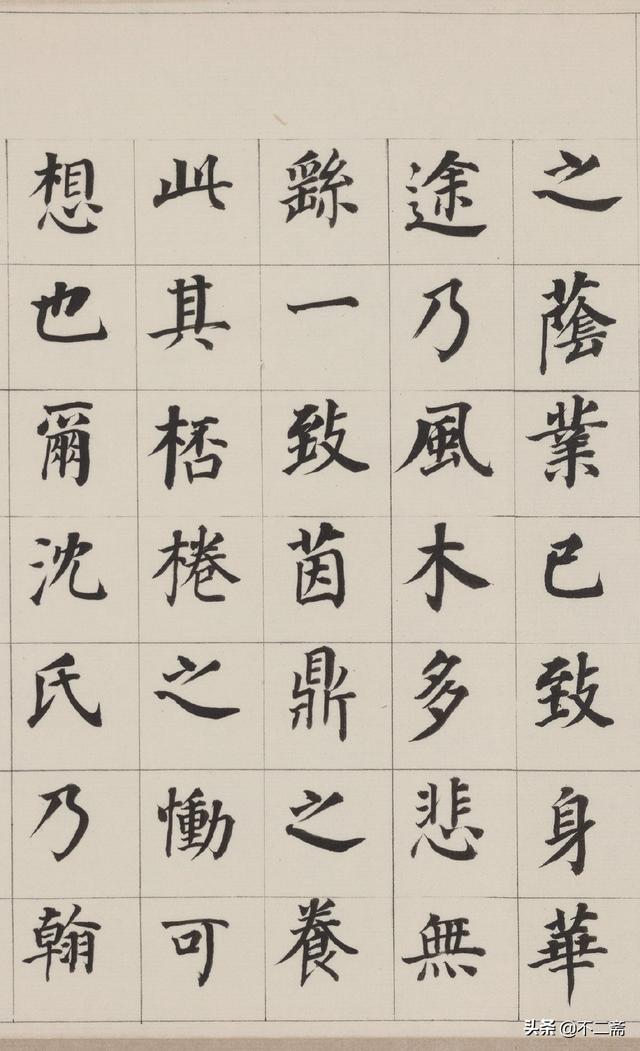 之蔭業已致身華
途乃風木多悲無
繇一致茵鼎之養
此其桮棬之慟可
想也爾沈氏乃翰
头条 @不二斋